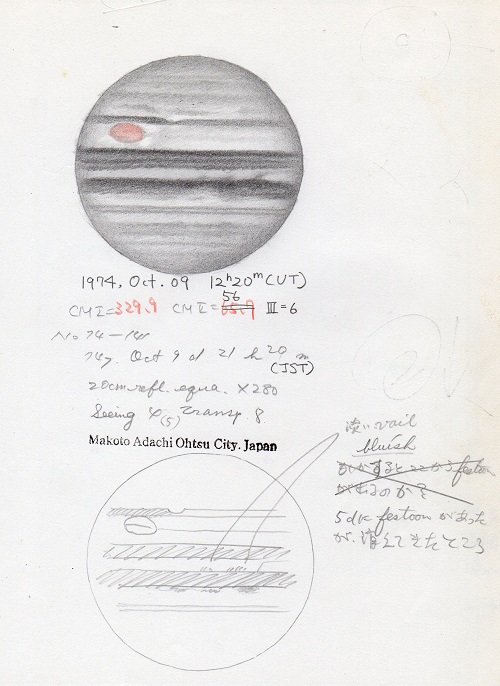 1974, Oct. 09 12h20m (UT)
CM I=329.9 CM II= 56 III=6
No 74-
74y. Oct 9 d 21 h 20 m
(JST)
20cm refl. equa. ×280
Seeing (5) Transp. 8
Makoto Adachi Ohtsu City. Japan
淡い vail
bluish
festoon
5 dk festoon があった
が、消えてきたところ